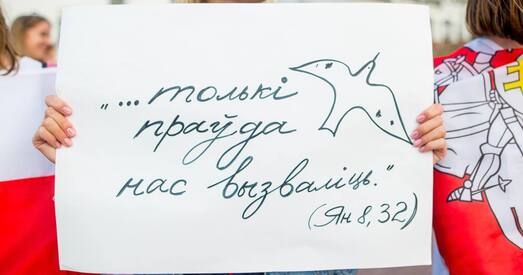 "... толькі
праўда
нас вызваліць."
(Ян 8, 32)